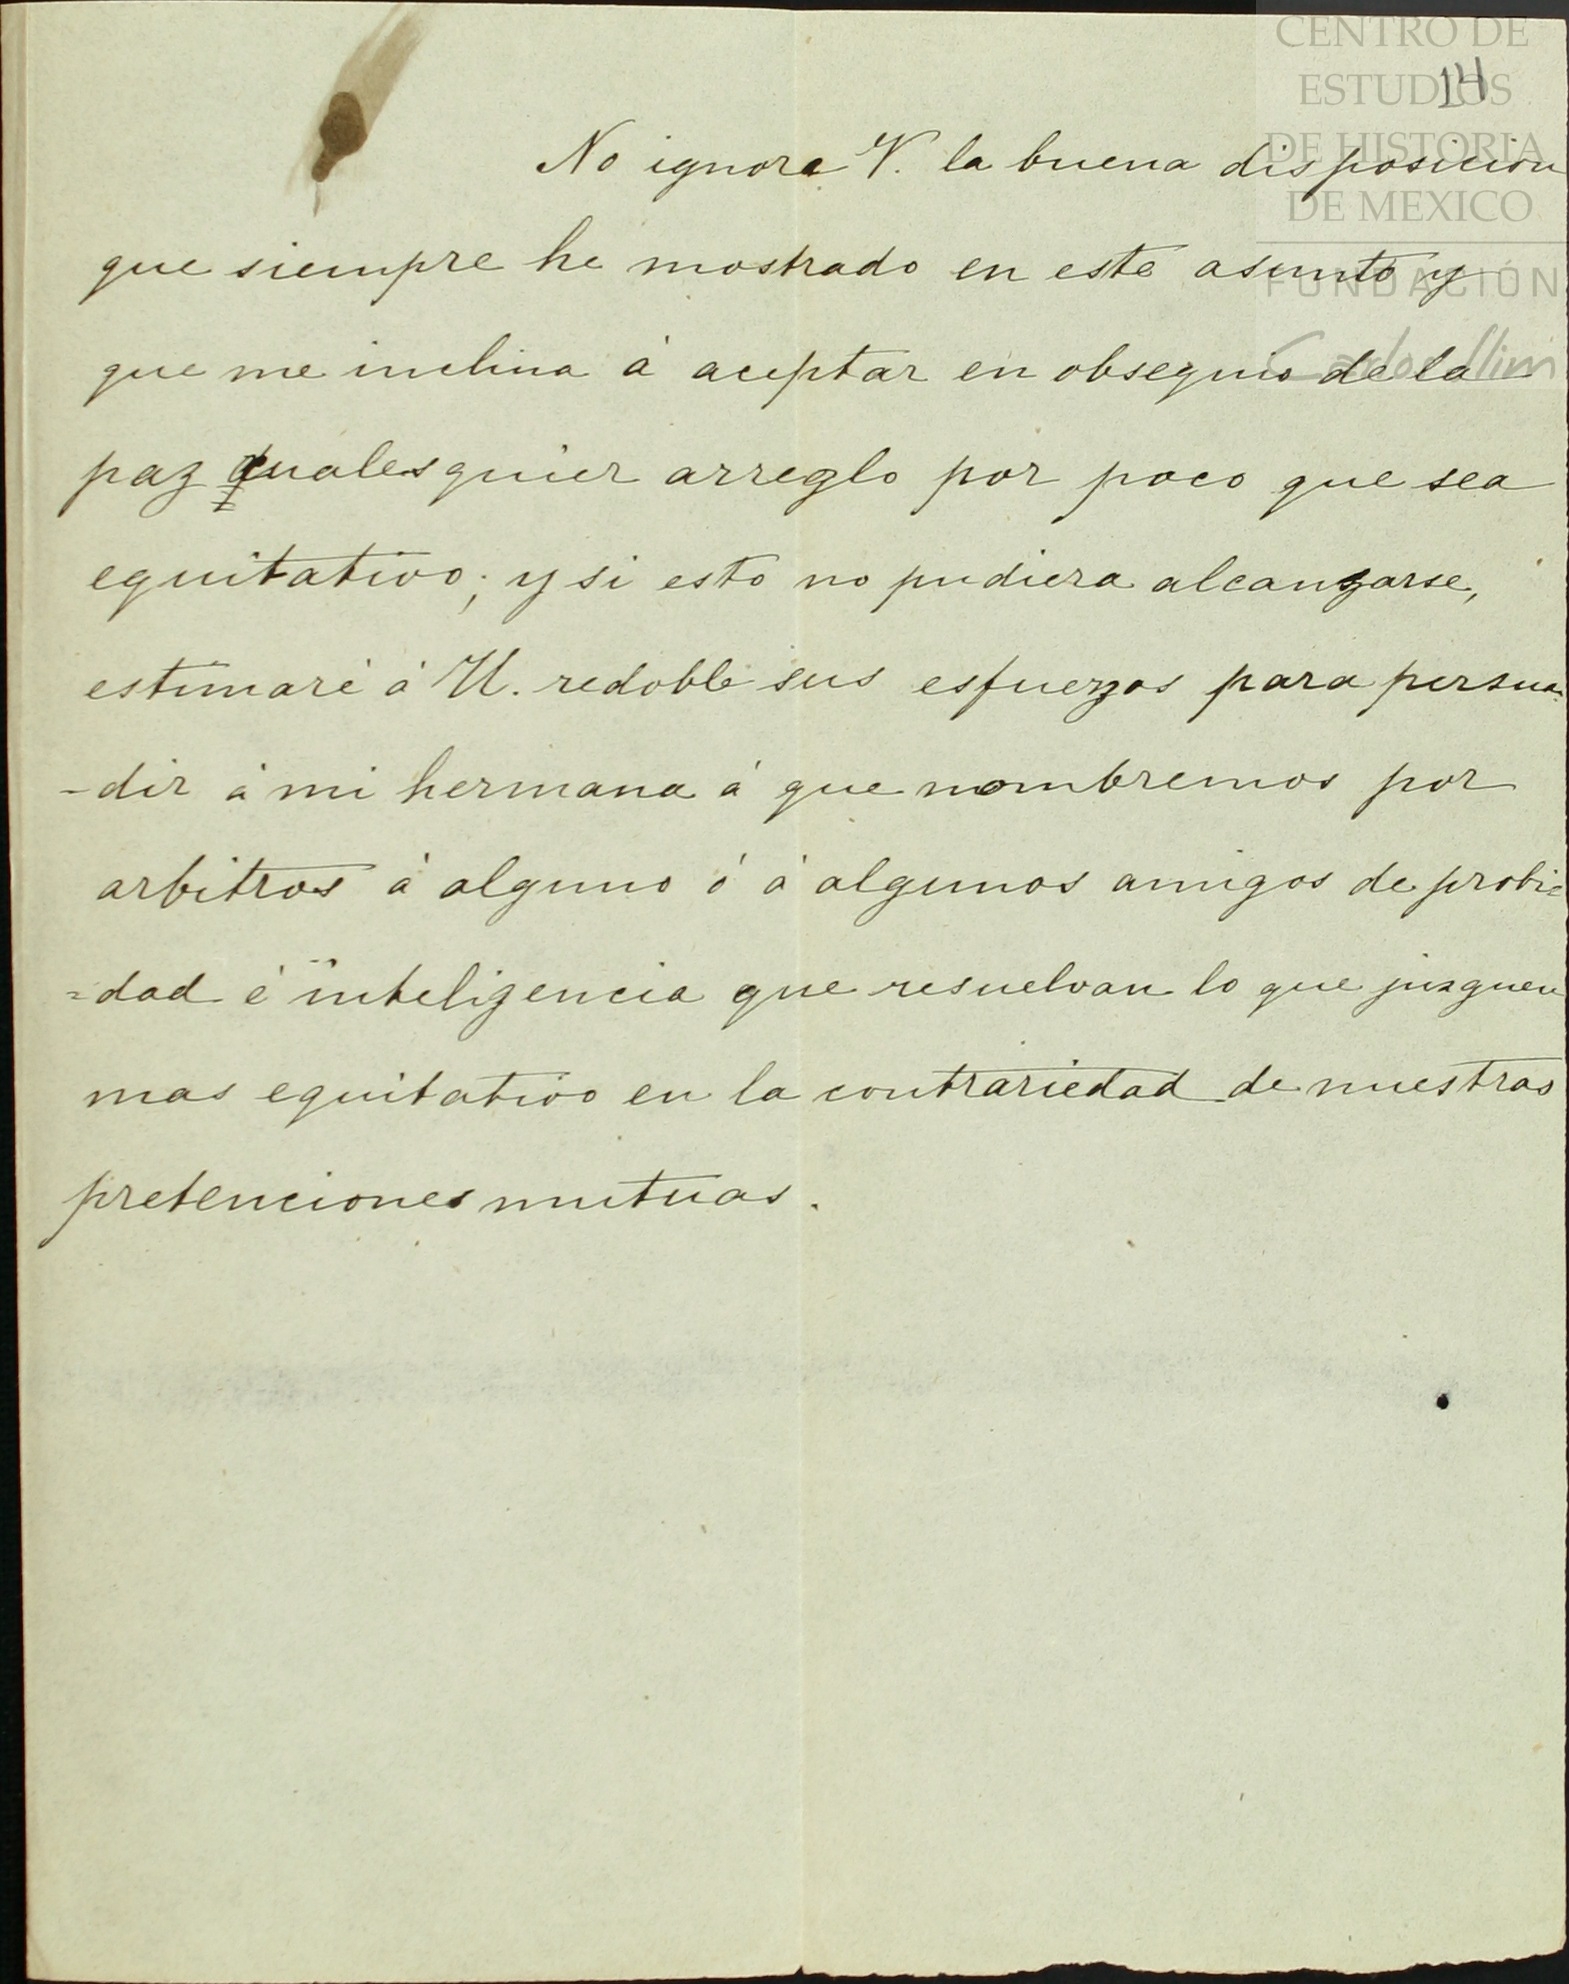 CENTRO DE
ESTUDIOS
DE HISTORIA
DE MEXICO
FUNDACIÓN
Carlos Slim
14
No ignora V. la buena disposicion
que siempre he mostrado en este asunto y
que me inclina á aceptar en obsequio de la
paz qualesquier arreglo por poco que sea
equitativo; y si esto no pudiera alcanzarse,
estimaré á U. redoble sus esfuerzos para persua-
-dir á mi hermana á que nombremos por
arbitros á alguno ó á algunos amigos de probi=
=dad é inteligencia que resuelvan lo que juzguen
mas equitativo en la contrariedad de nuestras
pretenciones mutuas.